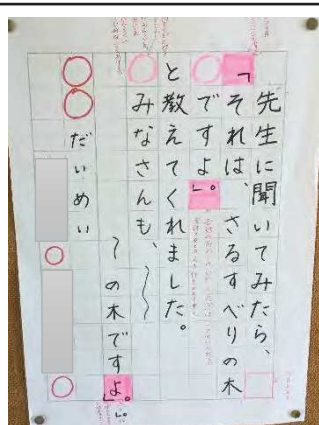 先生に聞いてみたら、
「それは、さるすべりの木
ですよ」。
と教えてくれました。
みなさんも、〜〜
〜の木ですよ。」
だいめい